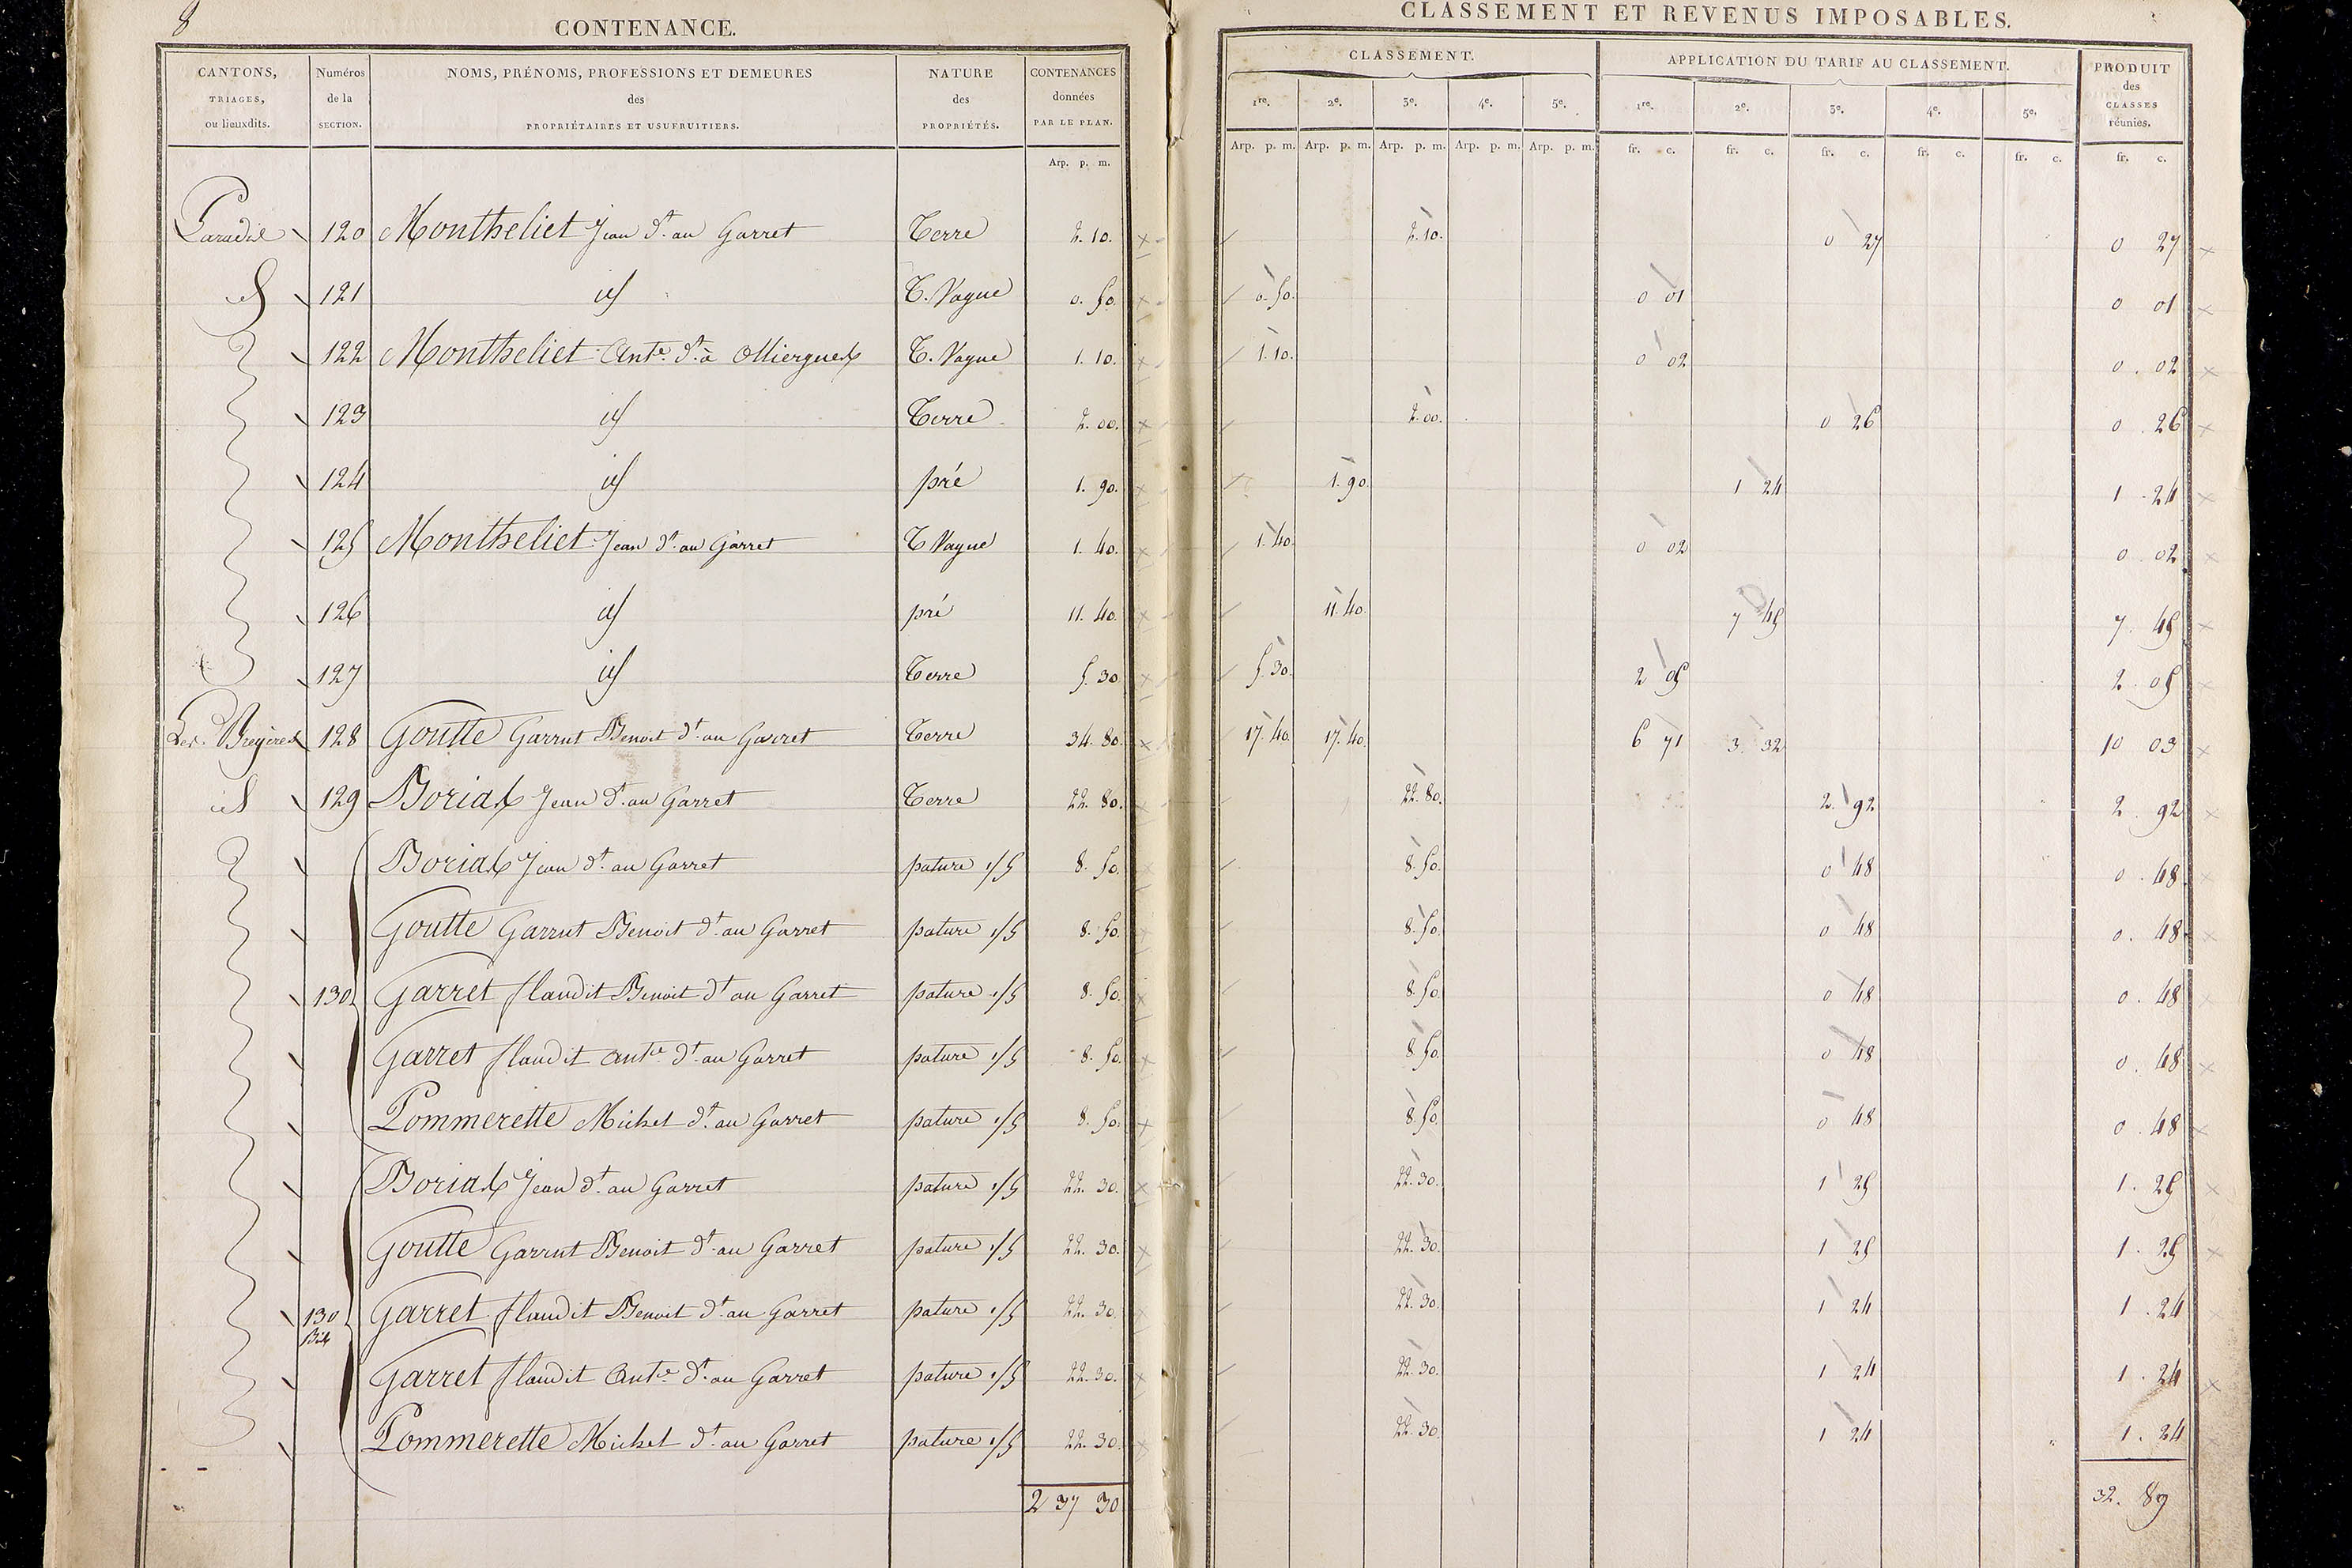 8
CONTENANCE.
CANTONS, TRIAGES, ou lieuxdits. | Numéros de la SECTION. | NOMS, PRÉNOMS, PROFESSIONS ET DEMEURES des PROPRIÉTAIRES ET USUFRUITIERS. | NATURE des PROPRIÉTÉS. | CONTENANCES données PAR LE PLAN.
Arp. p. m.
CLASSEMENT ET REVENUS IMPOSABLES.
CLASSEMENT. | APPLICATION DU TARIF AU CLASSEMENT. | PRODUIT des CLASSES réunies.
1re. 2e. 3e. 4e. 5e. 1re. 2e. 3e. 4e. 5e.
Arp. p. m. Arp. p. m. Arp. p. m. Arp. p. m. Arp. p. m. fr. c. fr. c. fr. c. fr. c. fr. c. fr. c.
120 Montheliet Jean dt. au Garret Terre 2. 10. 2. 10. 0 27 0 27
id 121 id T. Vague 0. 50. 0. 50. 0 01 0 01
122 Montheliet Ante. dt. à Olliergues T. Vague 1. 10. 1. 10. 0 02 0. 02
123 id Terre 2. 00. 2. 00. 0 26 0. 26
124 id pré 1. 90. 1. 90. 1 24 1. 24
125 Montheliet Jean dt. au Garret T Vague 1. 40. 1. 40. 0 02 0. 02
126 id pré 11. 40. 11. 40. 7 45 7. 45
127 id Terre 5. 30 5. 30. 2 05 2. 05
Les 128 Goutte Garrut Benoit dt. au Garret Terre 34. 80. 17. 40. 17. 40. 6 71 3. 32 10 03
id 129 Borias Jean dt. au Garret Terre 22. 80. 22. 80. 2. 92 2. 92
Borias Jean dt. au Garret pature 1/5 8. 50. 8. 50. 0 48 0. 48
Goutte Garrut Benoit dt. au Garret pature 1/5 8. 50. 8. 50. 0 48 0. 48
130 Garret flandit Benoit dt. au Garret pature 1/5 8. 50. 8. 50. 0 48 0. 48
Garret flandit Ante. dt. au Garret pature 1/5 8. 50. 8. 50. 0 48 0. 48
Pommerette Michel dt. au Garret pature 1/5 8. 50. 8. 50. 0 48 0. 48
Borias Jean dt. au Garret pature 1/5 22. 30. 22. 30. 1 25 1. 25
Goutte Garrut Benoit dt. au Garret pature 1/5 22. 30. 22. 30. 1 25 1. 25
130 Bis Garret flandit Benoit dt. au Garret pature 1/5 22. 30. 22. 30. 1 24 1. 24
Garret flandit Ante. dt. au Garret pature 1/5 22. 30. 22. 30. 1 24 1. 24
Pommerette Michel dt. au Garret pature 1/5 22. 30. 22. 30. 1 24 1. 24
2 37 30 32. 89